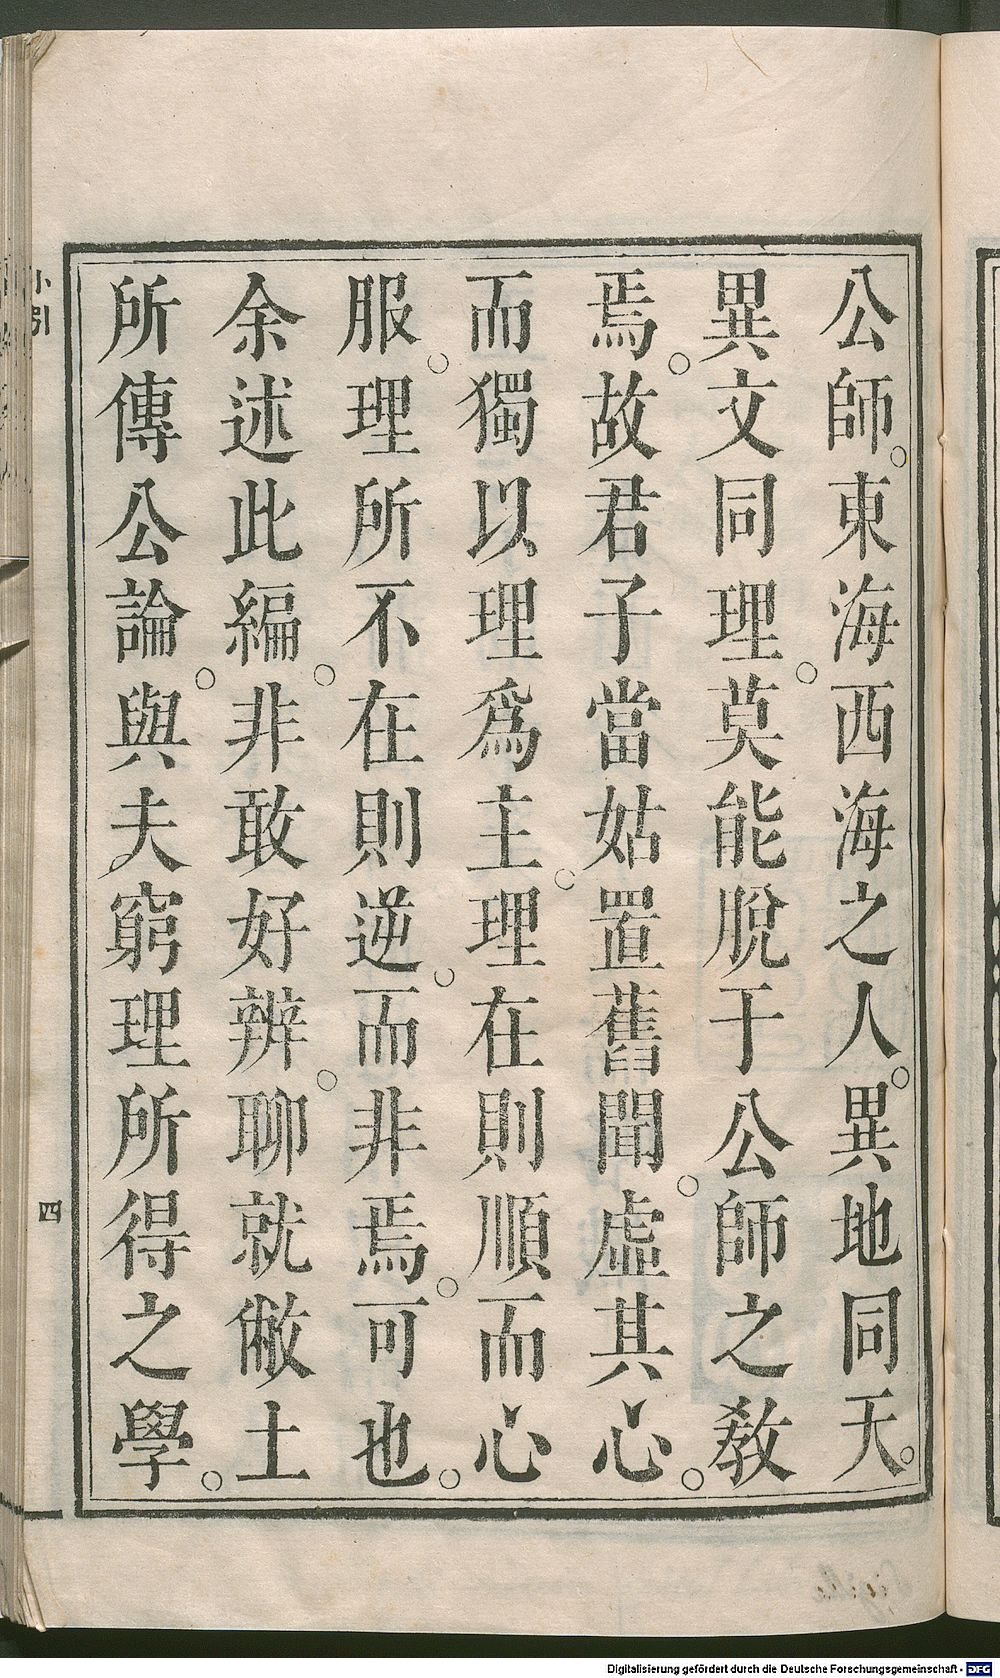 公師。東海西海之人。異地同天。
異文同理。莫能脫于公師之敎
焉。故君子當姑置舊聞。虛其心。
而獨以理爲主。理在則順而心
服。理所不在則逆。而非焉。可也。
余述此編。非敢好辨。聊就敝土
所傳公論。與夫窮理所得之學。
小引
四
Digitalisierung gefördert durch die Deutsche Forschungsgemeinschaft - DFG